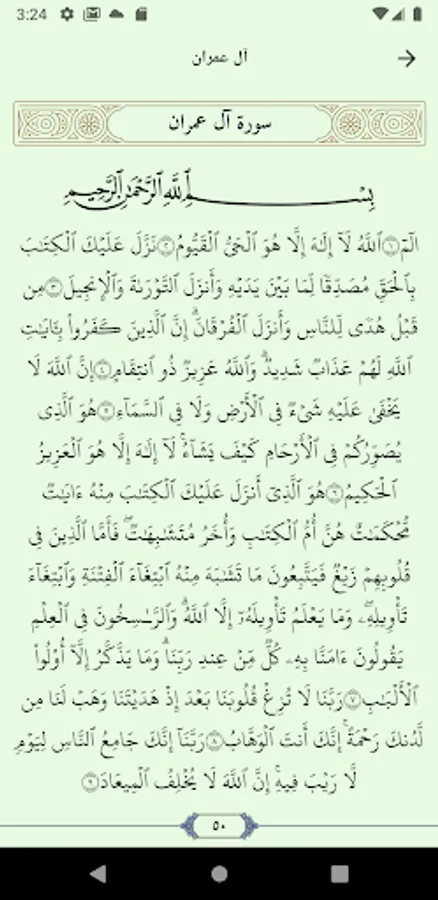 3:24
آل عمران
سورة آل عمران
بِسْمِ ٱللَّهِ ٱلرَّحْمَٰنِ ٱلرَّحِيمِ
الٓمٓ ۝١ ٱللَّهُ لَآ إِلَٰهَ إِلَّا هُوَ ٱلْحَىُّ ٱلْقَيُّومُ ۝٢ نَزَّلَ عَلَيْكَ ٱلْكِتَٰبَ
بِٱلْحَقِّ مُصَدِّقًا لِّمَا بَيْنَ يَدَيْهِ وَأَنزَلَ ٱلتَّوْرَىٰةَ وَٱلْإِنجِيلَ ۝٣ مِن
قَبْلُ هُدًى لِّلنَّاسِ وَأَنزَلَ ٱلْفُرْقَانَ ۗ إِنَّ ٱلَّذِينَ كَفَرُوا۟ بِـَٔايَٰتِ
ٱللَّهِ لَهُمْ عَذَابٌ شَدِيدٌ ۗ وَٱللَّهُ عَزِيزٌ ذُو ٱنتِقَامٍ ۝٤ إِنَّ ٱللَّهَ لَا
يَخْفَىٰ عَلَيْهِ شَىْءٌ فِى ٱلْأَرْضِ وَلَا فِى ٱلسَّمَآءِ ۝٥ هُوَ ٱلَّذِى
يُصَوِّرُكُمْ فِى ٱلْأَرْحَامِ كَيْفَ يَشَآءُ ۚ لَآ إِلَٰهَ إِلَّا هُوَ ٱلْعَزِيزُ
ٱلْحَكِيمُ ۝٦ هُوَ ٱلَّذِىٓ أَنزَلَ عَلَيْكَ ٱلْكِتَٰبَ مِنْهُ ءَايَٰتٌ
مُّحْكَمَٰتٌ هُنَّ أُمُّ ٱلْكِتَٰبِ وَأُخَرُ مُتَشَٰبِهَٰتٌ ۖ فَأَمَّا ٱلَّذِينَ فِى
قُلُوبِهِمْ زَيْغٌ فَيَتَّبِعُونَ مَا تَشَٰبَهَ مِنْهُ ٱبْتِغَآءَ ٱلْفِتْنَةِ وَٱبْتِغَآءَ
تَأْوِيلِهِۦ ۗ وَمَا يَعْلَمُ تَأْوِيلَهُۥٓ إِلَّا ٱللَّهُ ۗ وَٱلرَّٰسِخُونَ فِى ٱلْعِلْمِ
يَقُولُونَ ءَامَنَّا بِهِۦ كُلٌّ مِّنْ عِندِ رَبِّنَا ۗ وَمَا يَذَّكَّرُ إِلَّآ أُو۟لُوا۟
ٱلْأَلْبَٰبِ ۝٧ رَبَّنَا لَا تُزِغْ قُلُوبَنَا بَعْدَ إِذْ هَدَيْتَنَا وَهَبْ لَنَا مِن
لَّدُنكَ رَحْمَةً ۚ إِنَّكَ أَنتَ ٱلْوَهَّابُ ۝٨ رَبَّنَآ إِنَّكَ جَامِعُ ٱلنَّاسِ لِيَوْمٍ
لَّا رَيْبَ فِيهِ ۚ إِنَّ ٱللَّهَ لَا يُخْلِفُ ٱلْمِيعَادَ ۝٩
٥٠